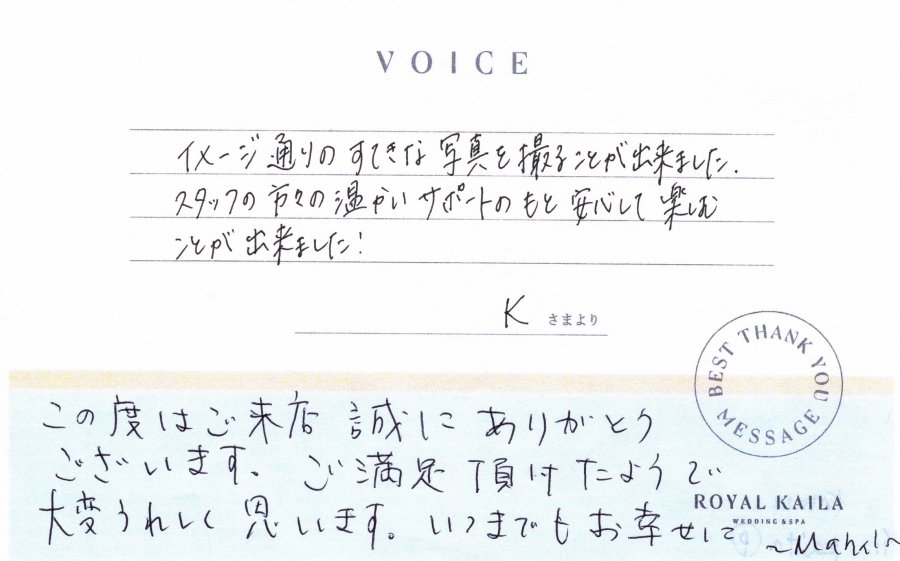 VOICE
イメージ通りのすてきな写真を撮ることが出来ました.
スタッフの方々の温かいサポートのもと安心して楽しむ
ことが出来ました!
K さまより
BEST THANK YOU MESSAGE
この度はご来店 誠にありがとう
ございます。ご満足頂けたようで
大変うれしく思います。いつまでもお幸せに
ROYAL KAILA
WEDDING & SPA